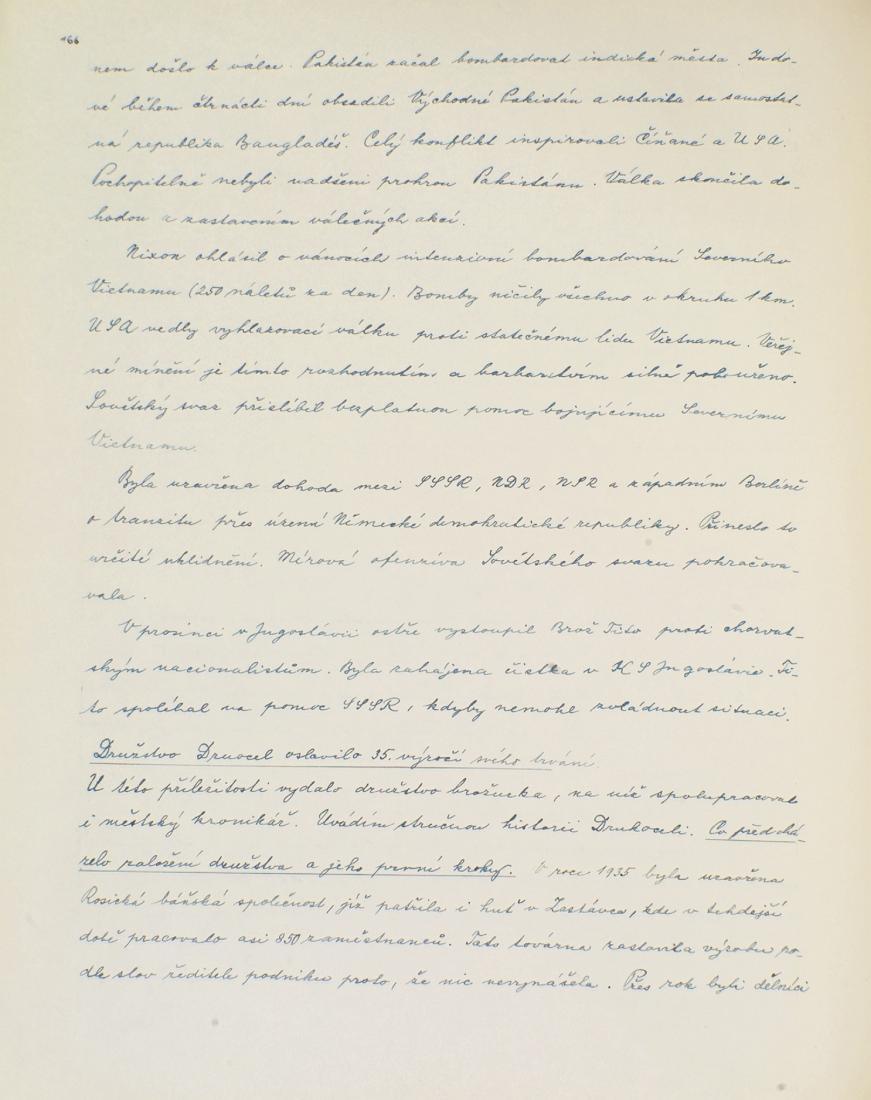 166
nem došlo k válce. Pakistán začal bombardovat indická města. Indo-
vé během čtrnácti dní obsadili Východní Pakistán a ustavila se samostat-
ná republika Bangladéš. Celý konflikt inspirovali Číňané a USA.
Pochopitelně nebyli nadšeni prohrou Pakistánu. Válka skončila do-
hodou a zastavením válečných akcí.
Nixon ohlásil o vánocích intenzivní bombardování Severního
Vietnamu (250 náletů za den). Bomby ničily všechno v okruhu 1 km.
USA vedly vyhlazovací válku proti statečnému lidu Vietnamu. Veřej-
né mínění je tímto rozhodnutím a barbarstvím silně pobouřeno.
Sovětský svaz přislíbil bezplatnou pomoc bojujícímu Severnímu
Vietnamu.
Byla uzavřena dohoda mezi SSSR, NDR, NSR a západním Berlíně
o tranzitu přes území Německé demokratické republiky. Přineslo to
určité uklidnění. Mírová ofenzíva Sovětského svazu pokračova-
vala.
V prosinci v Jugoslávii ostře vystoupil Brož Tito proti chorvat-
ským nacionalistům. Byla zahájena čistka v KS Jugoslávie. Ti-
to spoléhal na pomoc SSSR, kdyby nemohl zvládnout situaci.
Družstvo Druocel oslavilo 35. výročí svého trvání.
U této příležitosti vydalo družstvo brožurka, na níž spolupracoval
i městský kronikář. Uvádím stručnou historii Drukoceli. Co předchá-
zelo založení družstva a jeho první kroky. V roce 1935 byla uzavřena
Rosická báňská společnost, jíž patřila i huť v Zastávce, kde v tehdejší
době pracovalo asi 850 zaměstnanců. Tato továrna zastavila výrobu po-
dle slov ředitele podniku proto, že nic nevynášela. Přes rok byli dělníci